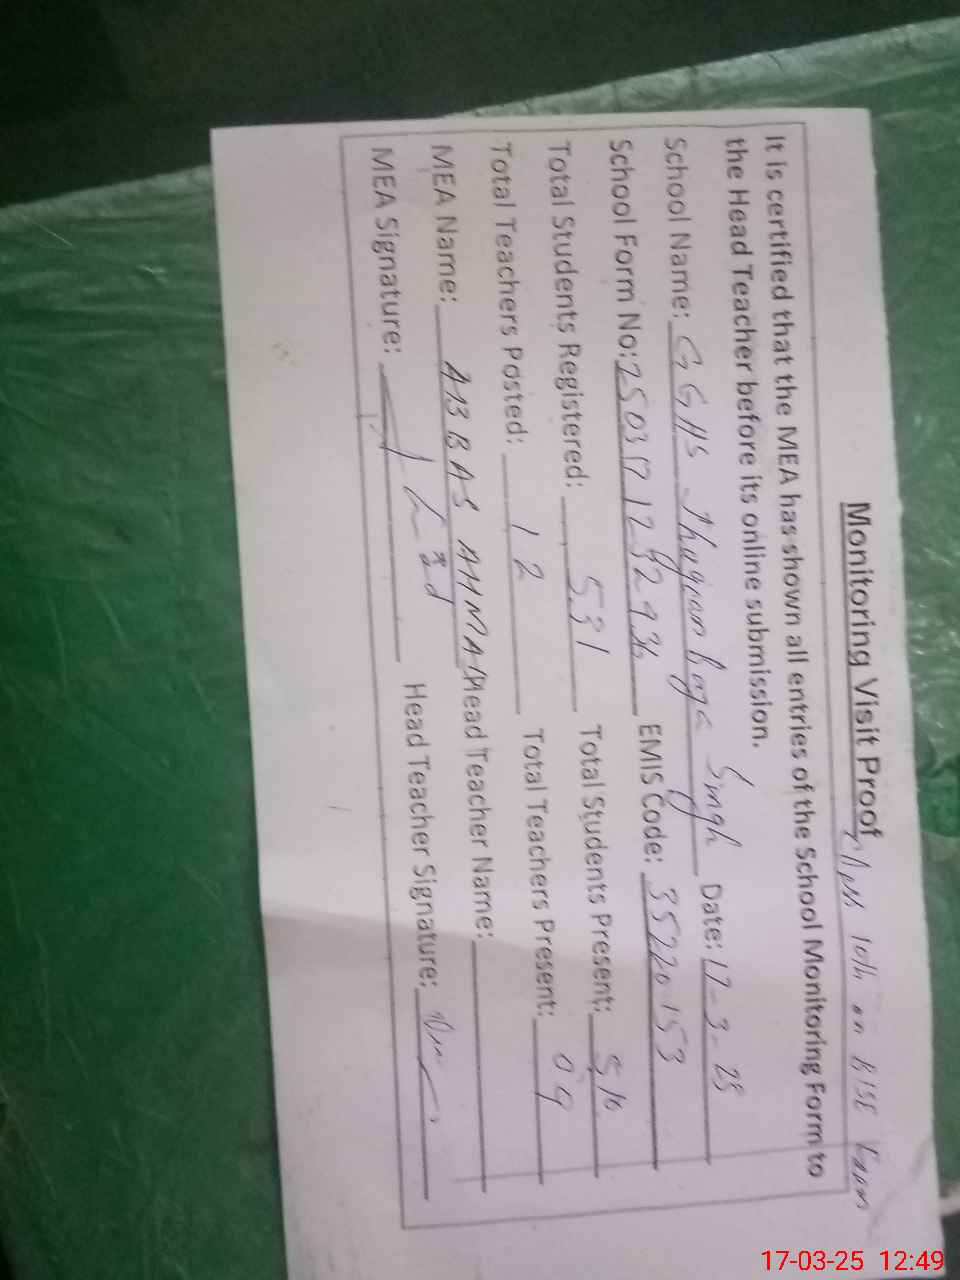 Monitoring Visit Proof 10th on BISE Exam
It is certified that the MEA has shown all entries of the School Monitoring Form to
the Head Teacher before its online submission.
School Name: GGHS Jhugian Singh Date: 17-3-25
School Form No: EMIS Code: 35220153
Total Students Registered: 531 Total Students Present: 510
Total Teachers Posted: 12 Total Teachers Present: 09
MEA Name: ABBAS AHMAD Head Teacher Name:
MEA Signature: Head Teacher Signature:
17-03-25 12:49